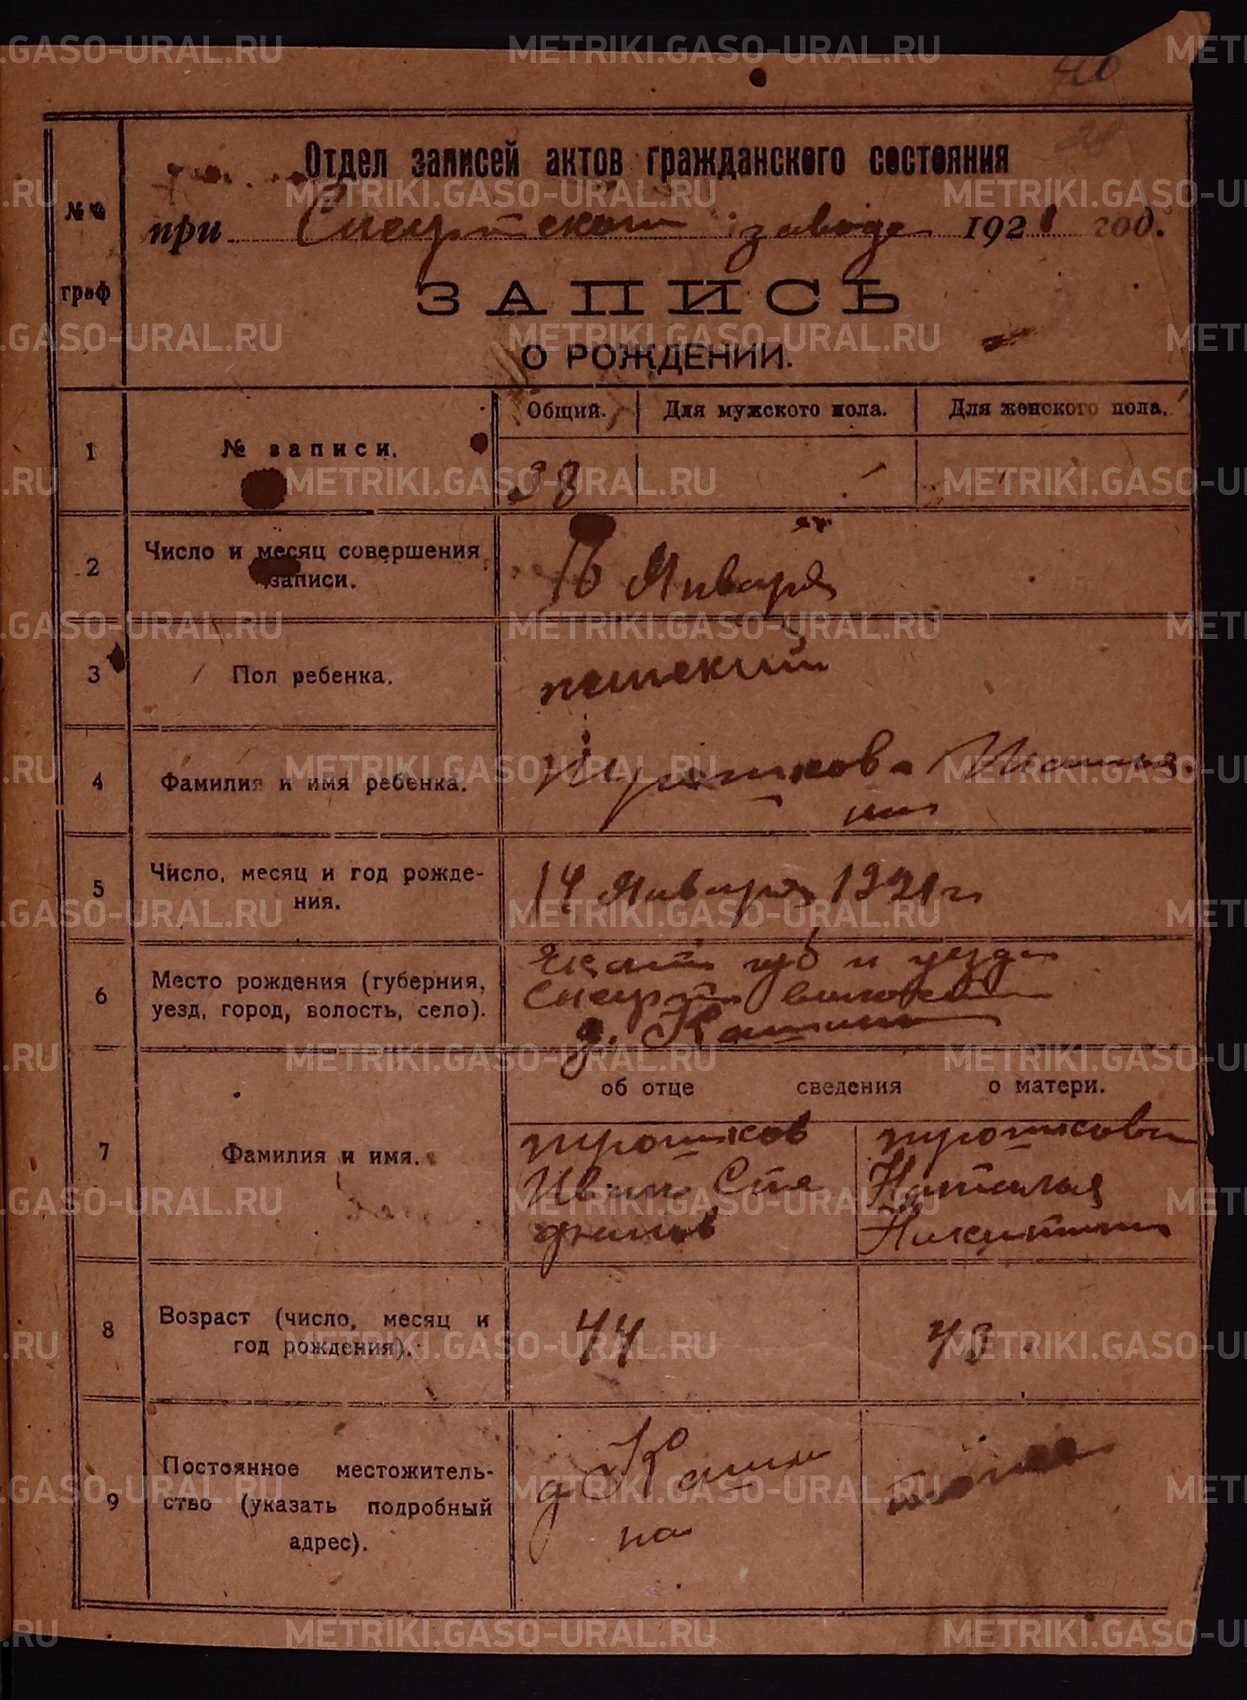 40
28
Отдел записей актов гражданского состояния
при Сысертском заводе 1921 год.
№№ граф
ЗАПИСЬ
О РОЖДЕНИИ.
1 № записи. Общий. Для мужского пола. Для женского пола.
38
2 Число и месяц совершения записи. 16 Января
3 Пол ребенка. женский
4 Фамилия и имя ребенка.
5 Число, месяц и год рождения. 14 Января 1921 г
6 Место рождения (губерния, уезд, город, волость, село). Екат губ и уезда
Сысерт волости
д. Кашина
об отце сведения о матери.
7 Фамилия и имя.
Иван Сте Наталья
фанов Никитина
8 Возраст (число, месяц и год рождения). 44 43
9 Постоянное местожительство (указать подробный адрес). д Каши
на
METRIKI.GASO-URAL.RU